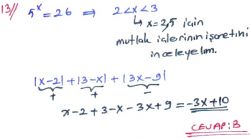 13) 5^x = 26 ⇒ 2 < x < 3
↳ x = 2,5 için
mutlak içlerinin işaretini
inceleyelim.
|x-2| + |3-x| + |3x-9|
+ + -
x-2 + 3-x - 3x + 9 = -3x + 10
CEVAP: B